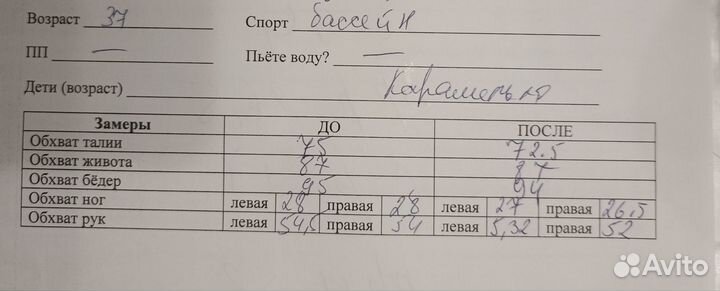 Возраст 37 Спорт бассейн
ПП — Пьёте воду? —
Дети (возраст)
Замеры ДО ПОСЛЕ
Обхват талии 75 72.5
Обхват живота 87 87
Обхват бёдер 95 94
Обхват ног левая 28 правая 28 левая 27 правая 26.5
Обхват рук левая 54,5 правая 54 левая 5,32 правая 52
Avito